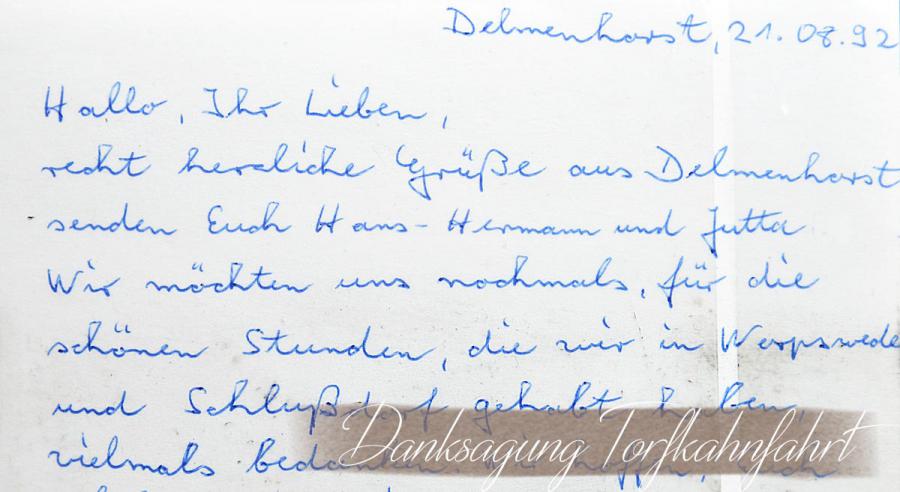 Delmenhorst, 21.08.92
Hallo, Ihr Lieben,
recht herzliche Grüße aus Delmenhorst
senden Euch Hans-Hermann und Jutta
Wir möchten uns nochmals, für die
schönen Stunden, die wir in Worpswede
und Schlußdorf gehabt haben,
vielmals bedanken.
Danksagung Torfkahnfahrt